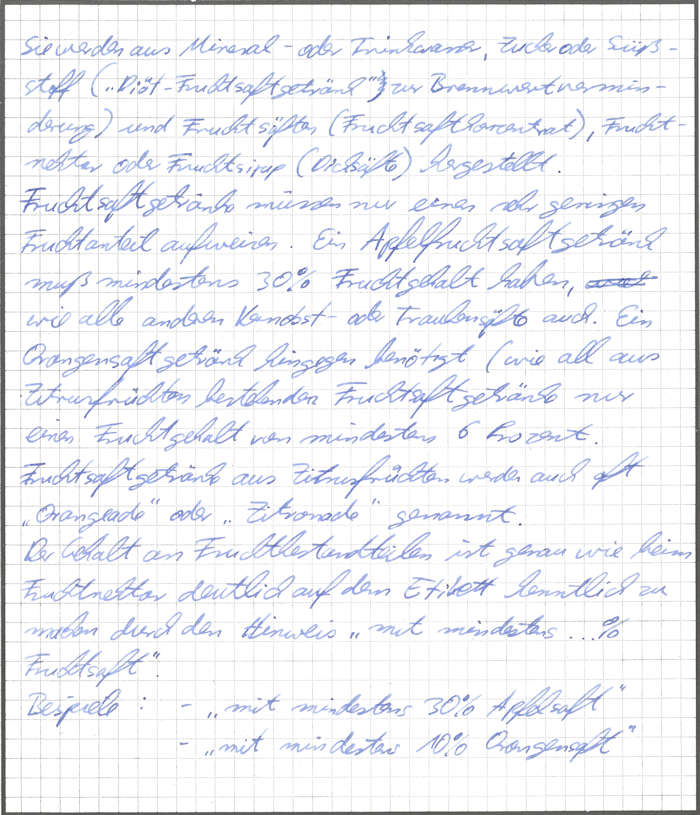 Sie werden aus Mineral- oder Trinkwasser, Zucker oder Süß-
stoff („Diät-Fruchtsaftgetränk“; zur Brennwertvermin-
derung) und Fruchtsäften (Fruchtsaftkonzentrat), Frucht-
nektar oder Fruchtsirup (Dicksäfte) hergestellt.
Fruchtsaftgetränke müssen nur einen sehr geringen
Fruchtanteil aufweisen. Ein Apfelfruchtsaftgetränk
muß mindestens 30% Fruchtgehalt haben,
wie alle anderen Kernobst- oder Traubensäfte auch. Ein
Orangensaftgetränk hingegen benötigt (wie all aus
Zitrusfrüchten bestehenden Fruchtsaftgetränke nur
einen Fruchtgehalt von mindestens 6 Prozent.
Fruchtsaftgetränke aus Zitrusfrüchten werden auch oft
„Orangeade“ oder „Zitronade“ genannt.
Der Gehalt an Fruchtbestandteilen ist genau wie beim
Fruchtnektar deutlich auf dem Etikett kenntlich zu
machen durch den Hinweis „mit mindestens ...%
Fruchtsaft“.
Beispiele : - „mit mindestens 30% Apfelsaft“
- „mit mindestens 10% Orangensaft“